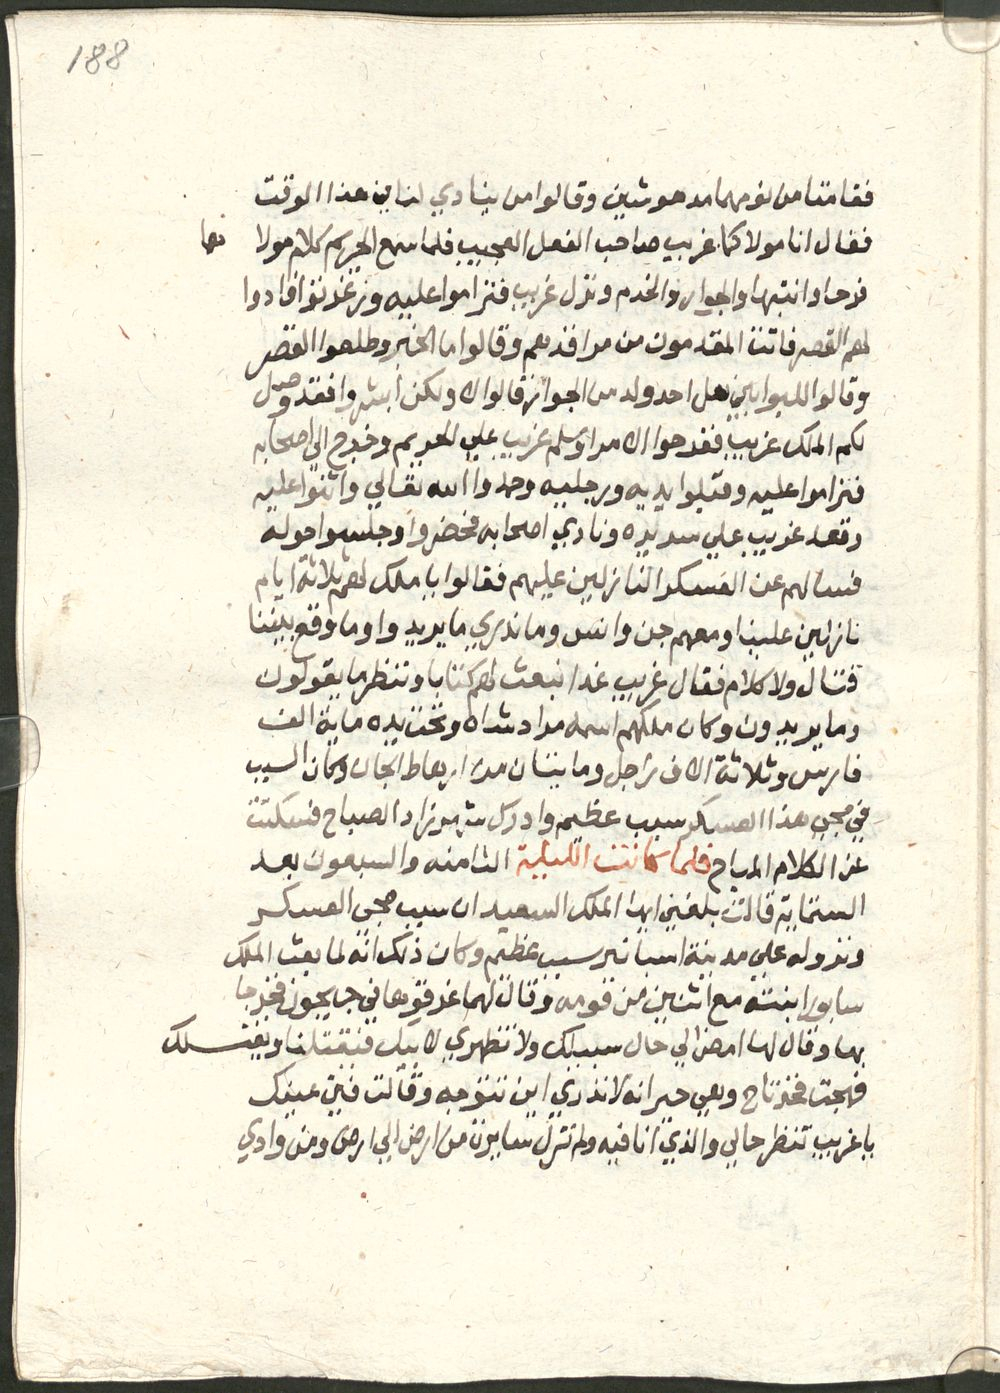 188
فقامتا من نومهما مدهوشين وقالوا من ينادي لنا في هذا الوقت
فقال انا مولاكما غريب صاحب الفعل العجيب فلما سمع الحريم كلام مولا هما
فرحا وانتبها والجوار والخدم ونزل غريب فتراموا عليه وزغرتوا فادوا
لهم القصر فاتت المقدمون من مراقدهم وقالوا ما الخبر وطلعوا القصر
وقالوا للبوابين هل احد ولد من الجوار قالوا لا ولكن ابشروا فقد وصل
لكم الملك غريب ففرحوا الامرا وسلم غريب علي الحريم وخرج الي اصحابه
فتراموا عليه وقبلوا يديه ورجليه وحمدوا الله تعالي واثنوا عليه
وقعد غريب علي سريره ونادي اصحابه فحضروا وجلسوا حوله
فسالهم عن العسكر النازلين عليهم فقالوا يا ملك لهم ثلاثة ايام
نازلين علينا ومعهم جن وانس وما ندري ما يريدوا وما وقع بيننا
قتال ولا كلام فقال غريب غدا نبعث لهم كتابا وننظر ما يقولون
وما يريدون وكان ملكهم اسمه مرادشاه وتحت يده ماية الف
فارس وثلاثة الاف راجل ومايتان من ارهاط الجان وكان السبب
في مجي هذا العسكر سبب عظيم وادرك شهرزاد الصباح فسكتت
عن الكلام المباح فلما كانت الليلة الثامنه والسبعون بعد
الستماية قالت بلغني ايها الملك السعيد ان سبب مجي العسكر
ونزوله علي مدينة اسبانير سبب عظيم وكان ذلك انه لما بعث الملك
سابور ابنته مع اثنين من قومه وقال لهما غرقوها في جيجون فخرجا
بها وقال لها امضي الي حال سبيلك ولا تظهري لابيك فنقتلنا ويقتلك
فهجت فخرتاج وهي حيرانة لا تدري اين تتوجه وقالت فين عينك
يا غريب تنظر حالي والذي انا فيه ولم تزل سايرة من ارض الي ارض ومن وادي